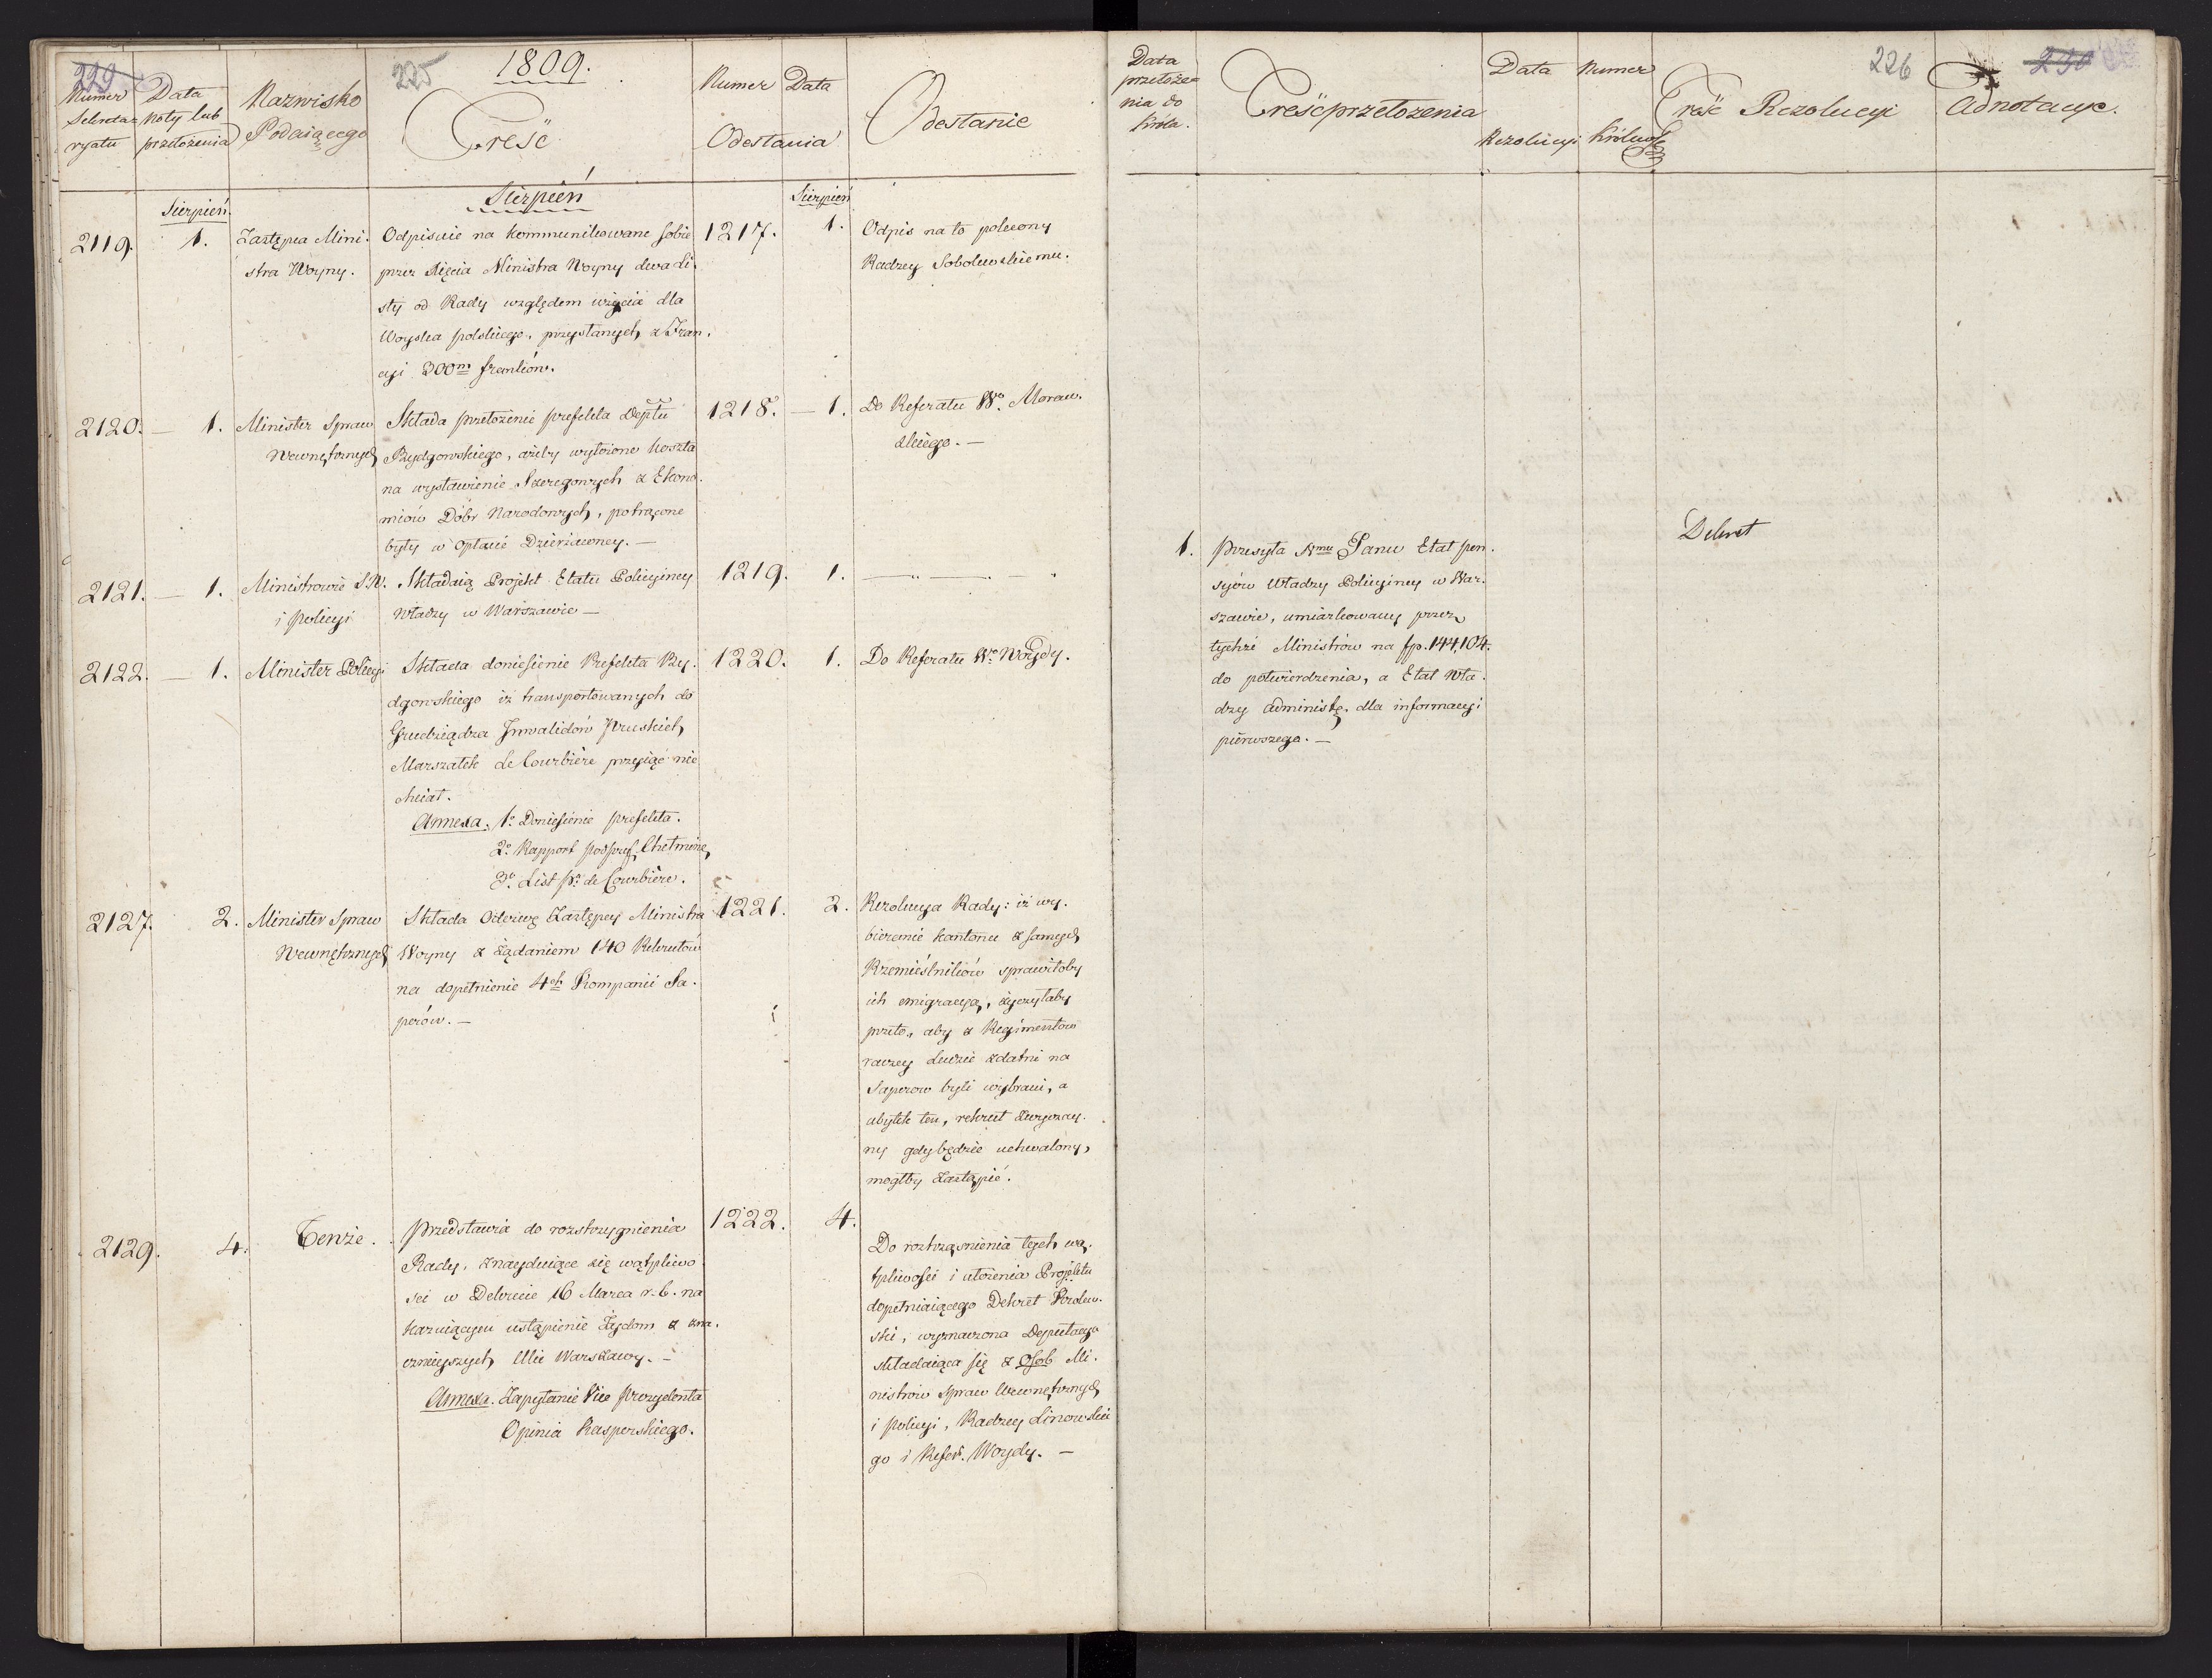 229
225
1809.
Numer
Sekreta-
ryatu
Data
Noty lub
przełożenia
Nazwisko
Podaiącego
Treść
Numer Data
Odesłania
Odesłanie
Sierpień
Sierpień
Sierpień
2119.
1.
Zastępca Mini-
stra Woyny.
Odpisuie na kommunikowane sobie
przez Xięcia Ministra Woyny dwa li-
sty od Rady względem użycia dla
Woyska polskiego, przysłanych z Fran-
cyi 300m franków.
1217.
1.
Odpis na to polecony
Radzcy Sobolewskiemu.
2120. —
1.
Minister Spraw
Wewnętrznych
Składa przełożenie prefekta Deptu
Bydgowskiego, ażeby wyłożone koszta
na wystawienie Szeregowych z Ekono-
miów Dóbr Narodowych, potrącone
były w opłacie Dzierżawney. —
1218. —
1.
Do Referatu Wo. Moraw-
skiego. —
2121. —
1.
Ministrowie S.W.
i Policyi
Składaią Projekt Etatu Policyiney
Władzy w Warszawie —
1219.
1.
2122. —
1.
Minister Policyi
Składa doniesienie Prefekta By-
dgowskiego iż transportowanych do
Grudziądza Inwalidów Pruskich
Marszałek de Courbière przyiąć nie
chciał.
Annexa. 1o Doniesienie prefekta.
2o Rapport podpref. Chełmiń.
3o. List Po. de Courbière.
1220.
1.
Do Referatu Wo. Woydy.
2127.
2.
Minister Spraw
Wewnętrznych
Składa Odezwę Zastępcy Ministra
Woyny z żądaniem 140 Rekrutów
na dopełnienie 4ch Kompanii Sa-
perów. —
1221.
2.
Rezolucya Rady: iż wy-
bieranie kantonu z samych
Rzemieślników sprawiłoby
ich emigracyą, życzyłaby
przeto, aby z Regimentow
raczey Ludzie zdatni na
Saperow byli wybrani, a
ubytek ten, rekrut zwyczay-
ny gdy będzie uchwalony,
mogłby zastąpić.
2129.
4.
Tenże.
Przedstawia do rozstrzygnienia
Rady, znayduiące się wątpliwo-
sci w Dekrecie 16 Marca r. b. na-
kazuiącym ustąpienie Żydom z zna-
cznieyszych Ulic Warszawy. —
Annexa. Zapytanie Vice Prezydenta
Opinia Kasperskiego.
1222.
4.
Do roztrząsnienia tych wą-
tpliwości i ułożenia Projektu
dopełniaiącego Dekret Królew-
ski, wyznaczona Deputacya
składaiąca się z Osob Mi-
nistrów Spraw Wewnętrznych
i Policyi, Radzcy Linowskie-
go i Refer. Woydy. —
226
230
Data
przełoże-
nia do
Króla.
Treść przełożenia
Data Numer
Rezolucyi Królewsk.
Treść Rezolucyi
Adnotacye.
1.
Przesyła Nmu Panu Etat pen-
syów Władzy Policyiney w War-
szawie, umiarkowany przez
tychże Ministrów na fp. 144,104.
do potwierdzenia, a Etat Wła-
dzy Administr. dla informacyi
pierwszego. —
Dekret